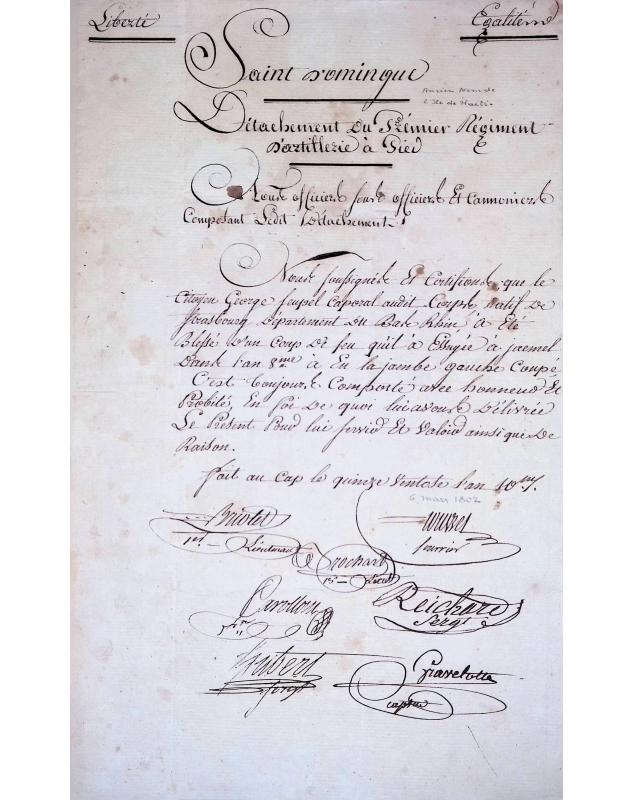 Liberté Egalité
Saint Domingue
Ancien Nom de
l'Ile de Haïti
Détachement Du Prémier Régiment
D'artillerie à Pied
Nous officiers sous officiers Et Cannoniers
Composant Ledit Détachement
Nous soussignés Et Certifions que le
Citoyen George Caporal audit Corps Natif De
Strasbourg Département Du Bas Rhin à Eté
Blessé D'un Coup De feu quil à Essuyée à jacmel
Dans l'an 8me à Eu la jambe gauche Coupé
C'est toujours Comporté avec honneur Et
Probité, En foi De quoi lui avons Délivrée
Le Présent Pour lui servir Et Valoir ainsi que De
Raison.
fait au Cap le quinze Ventose l'an 10me.
6 mars 1802
Briolet
1er Lieutenant
fourrier
Crochart
1er Lieut
Carollon
Reichard
Sergt
Hubert
sergt
Gravelotte
captne